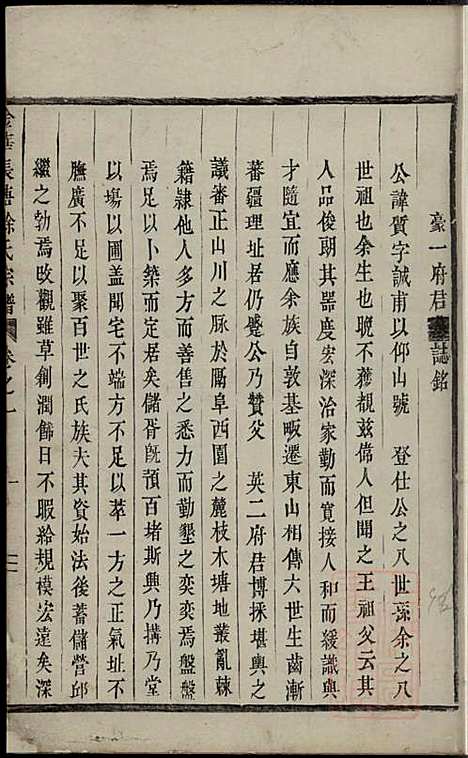 豪一府君墓誌銘
公諱質字誠甫以仰山號　登仕公之八世孫余之八
世祖也余生也晚不獲覩茲偉人但聞之王祖父云其
人品俊朗其器度宏深治家勤而寬接人和而緩識與
才隨宜而應余族自敦基畈遷東山相傳六世生齒漸
蕃疆理址居仍蹙公乃贊父　英二府君博採堪輿之
議審正山川之脉於隔阜西園之麓枝木塘地叢亂棘
籍隸他人多方而善售之悉力而勤墾之奕奕焉盤盤
焉足以卜築而定居矣儲胥既蕷百堵斯興乃搆乃堂
以塲以圃盖閈宅不端方不足以萃一方之正氣址不
膴廣不足以聚百世之氏族夫其資始法後蓄儲營邱
繼之勃焉改觀雖草創潤餙日不暇給規模宏遠矣深
金華長塘徐氏宗譜　卷之九